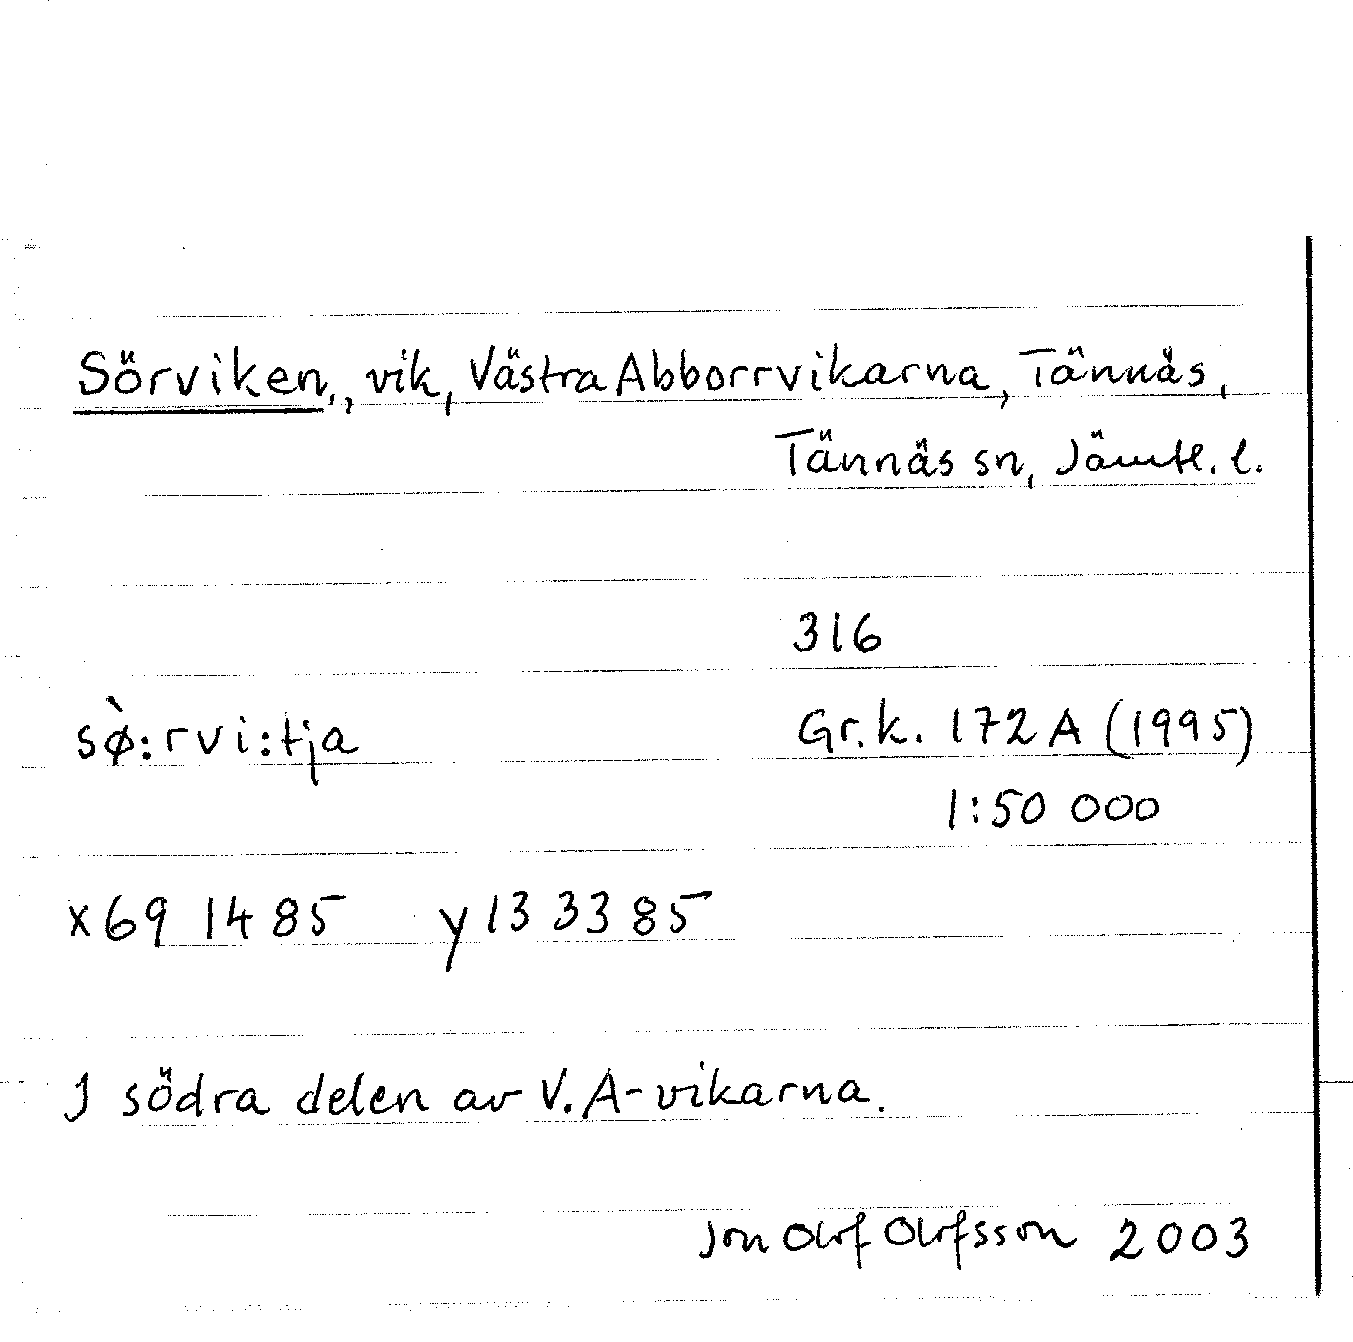 Sörviken, vik, Västra Abborrvikarna, Tännäs,
Tännäs sn, Jämtl. l.
316
sø̀:rvi:tja Gr.k. 172 A (1995)
1:50 000
x69 14 85 y13 33 85
I södra delen av V. A-vikarna.
Jon Olof Olofsson 2003